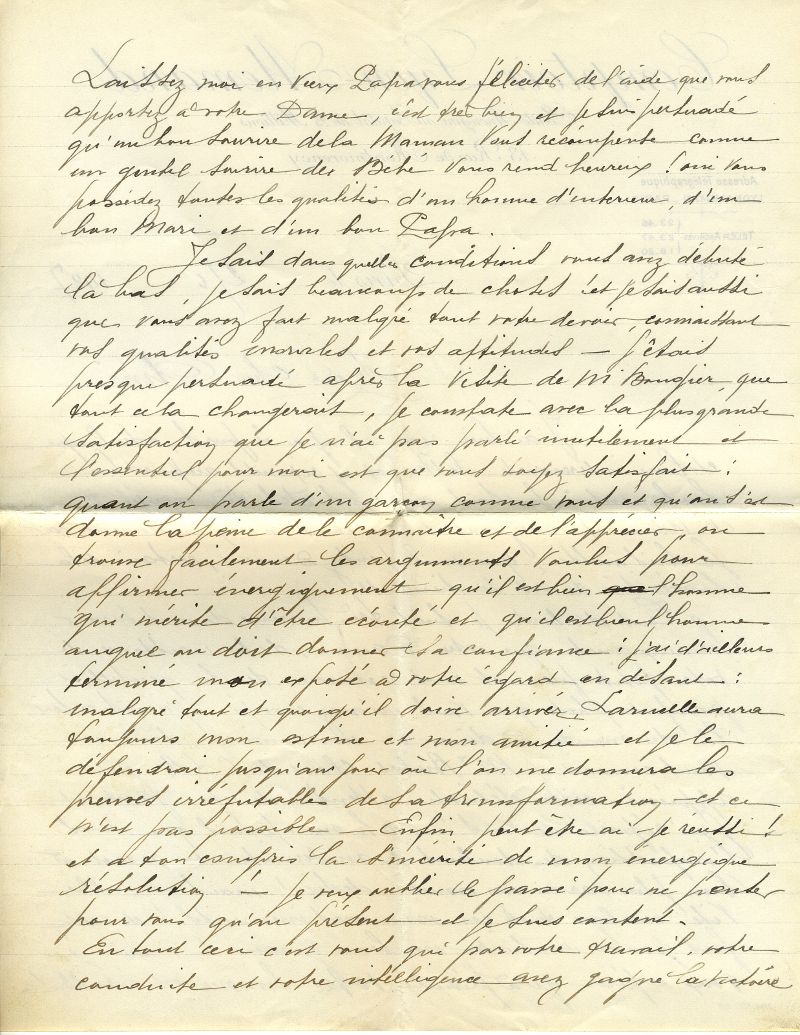 Laissez moi en vieux Papa vous féliciter de l'aide que vous
apportez à votre Dame, c'est très bien et je suis persuadé
qu'un bon sourire de la Maman vous récompense comme
un gentil sourire des Bébé vous rend heureux ! oui vous
possédez toutes les qualités d'un homme d'interieur, d'un
bon Mari et d'un bon Papa.
Je sais dans quelles conditions vous avez débuté
là bas, je sais beaucoup de choses ! et je sais aussi
que vous avez fait malgré tout votre devoir, connaissant
vos qualités morales et vos aptitudes — j'étais
presque persuadé après la visite de Mr Bougier, que
tout cela changerait, je constate avec la plus grande
satisfaction que je n'ai pas parlé inutilement et
l'essentiel pour moi est que vous soyez satisfait :
quant on parle d'un garçon comme vous et qu'on s'est
donné la peine de le connaître et de l'apprécier, on
trouve facilement les arguments voulus pour
affirmer énergiquement qu'il est bien que l'homme
qui mérite d'être écouté et qu'il est bien l'homme
auquel on doit donner sa confiance : j'ai d'ailleurs
terminé mon exposé à votre égard en disant :
malgré tout et quoiqu'il doive arriver, Laruelle aura
toujours mon estime et mon amitié et je le
défendrai jusqu'au jour où l'on me donnera les
preuves irréfutables de sa transformation — et ce
n'est pas possible — Enfin peut être ai-je réussi !
et a t'on compris la sincérité de mon énergique
résolution ! — je veux oublier le passé pour ne penser
pour vous qu'au présent et je suis content.
En tout ceci c'est vous qui par votre travail, votre
conduite et votre intelligence avez gagné la victoire